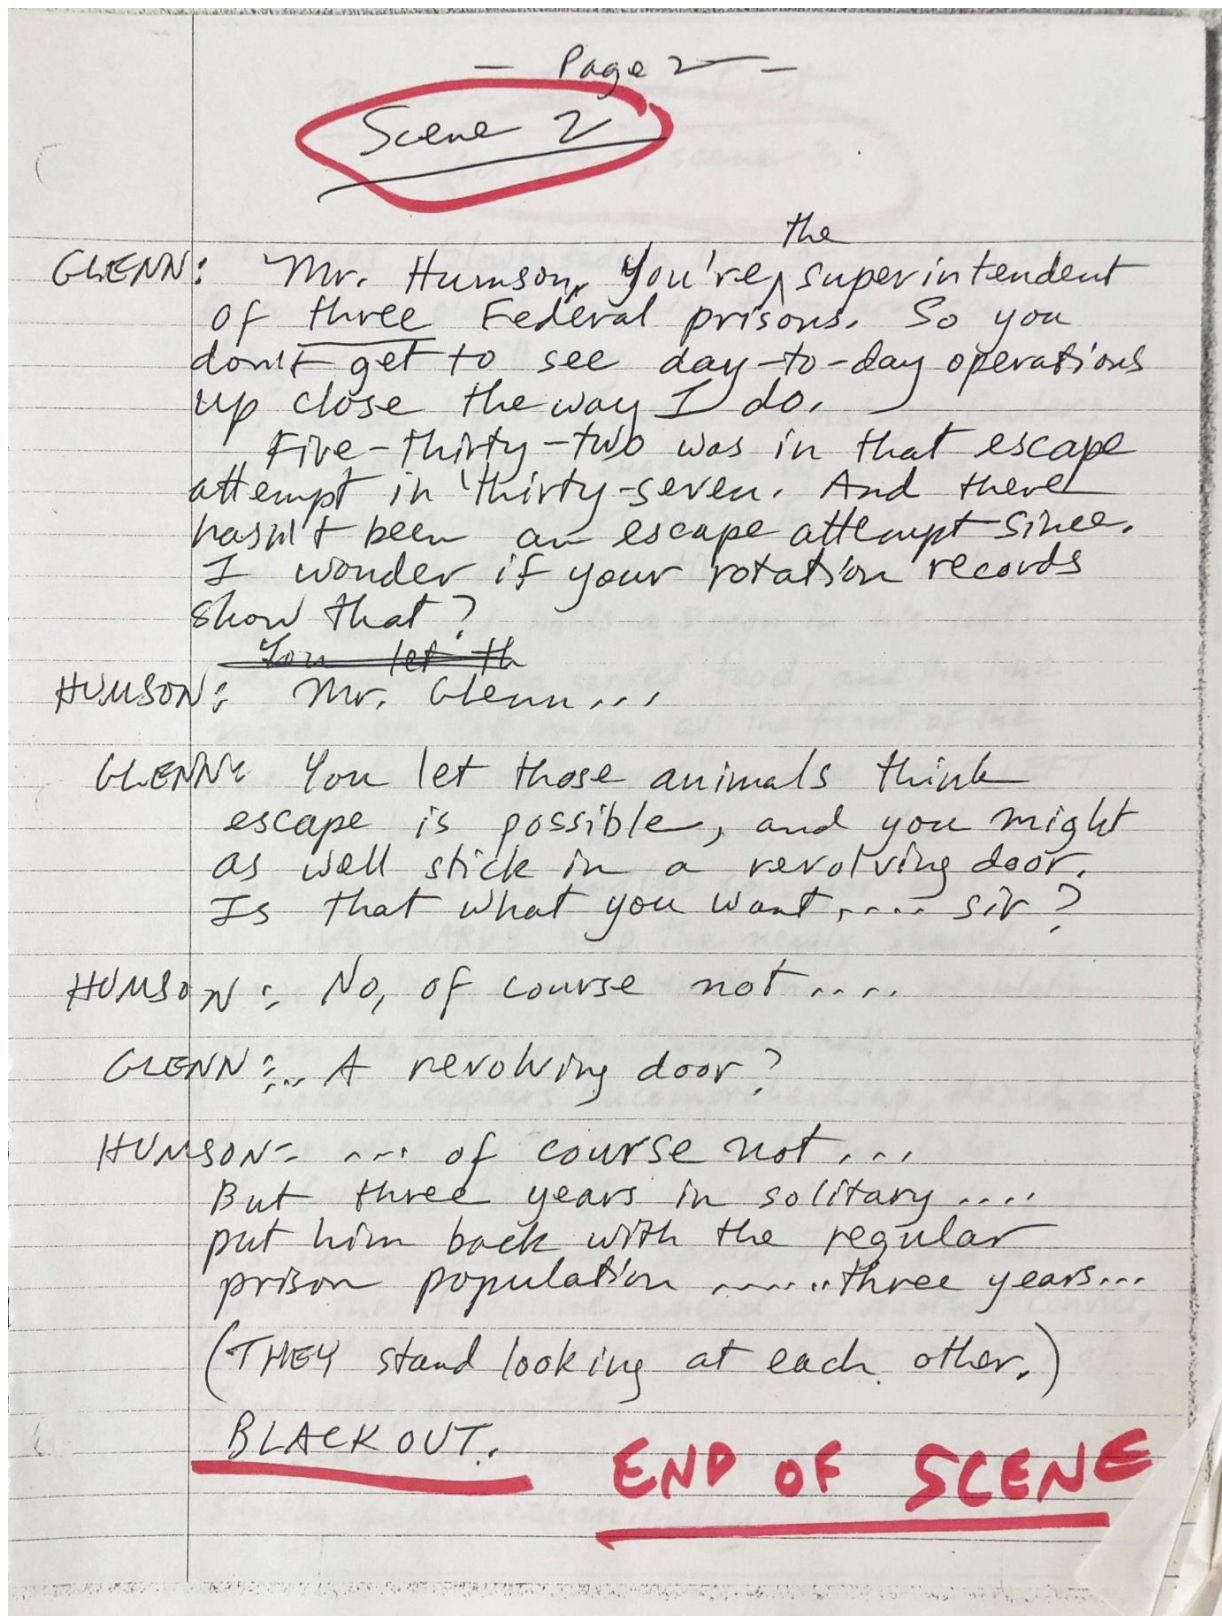 - Page 2 -
Scene 2
the
GLENN: Mr. Humson, You're ^ superintendent
of three Federal prisons. So you
don't get to see day-to-day operations
up close the way I do.
Five-thirty-two was in that escape
attempt in 'thirty-seven. And there
hasn't been an escape attempt since.
I wonder if your rotation records
show that?
You let th
HUMSON: Mr. Glenn...
GLENN: You let those animals think
escape is possible, and you might
as well stick in a revolving door.
Is that what you want,.... sir?
HUMSON: No, of course not....
GLENN:... A revolving door?
HUMSON: ... of course not...
But three years in solitary....
put him back with the regular
prison population ......three years...
(THEY stand looking at each other.)
BLACKOUT.
END OF SCENE